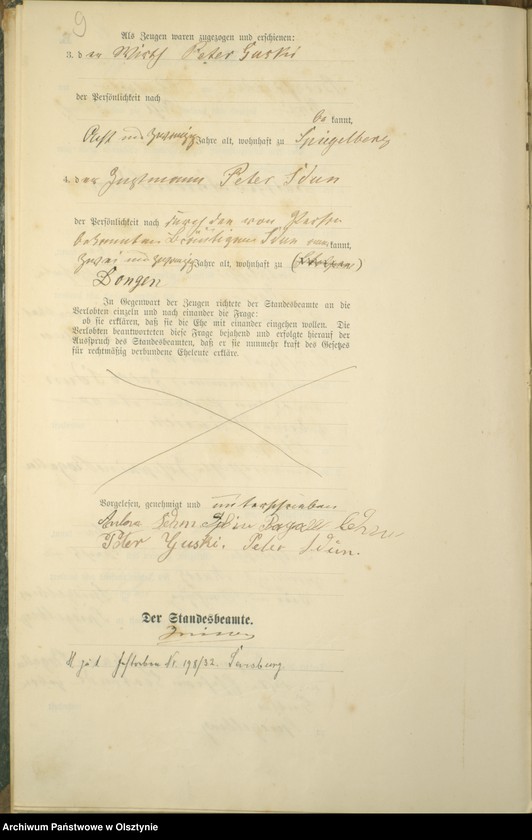 9
Als Zeugen waren zugezogen und erschienen:
3. d er Wirth Peter Guski
der Persönlichkeit nach
be kannt,
Acht und zwanzig Jahre alt, wohnhaft zu Spiegelberg
4. d er Peter Sdun
der Persönlichkeit nach durch den von Person
bekannten Bräutigam Sdun kannt,
zwei und zwanzig Jahre alt, wohnhaft zu
Dongen
In Gegenwart der Zeugen richtete der Standesbeamte an die
Verlobten einzeln und nach einander die Frage:
ob sie erklären, daß sie die Ehe mit einander eingehen wollen. Die
Verlobten beantworteten diese Frage bejahend und erfolgte hierauf der
Ausspruch des Standesbeamten, daß er sie nunmehr kraft des Gesetzes
für rechtmäßig verbundene Eheleute erkläre.
Vorgelesen, genehmigt und unterschrieben
Peter Guski. Peter Sdun.
Der Standesbeamte.
Nr. 198/32.
Archiwum Państwowe w Olsztynie